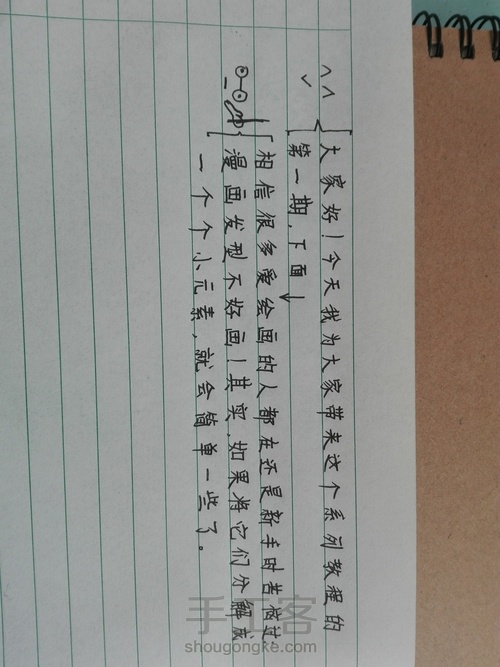 大家好！今天我为大家带来这个系列教程的
第一期，下面↓
相信很多爱绘画的人都在还是新手时苦恼过
漫画发型不好画！其实，如果将它们分解成
一个个小元素，就会简单一些了。
手工客
shougongke.com